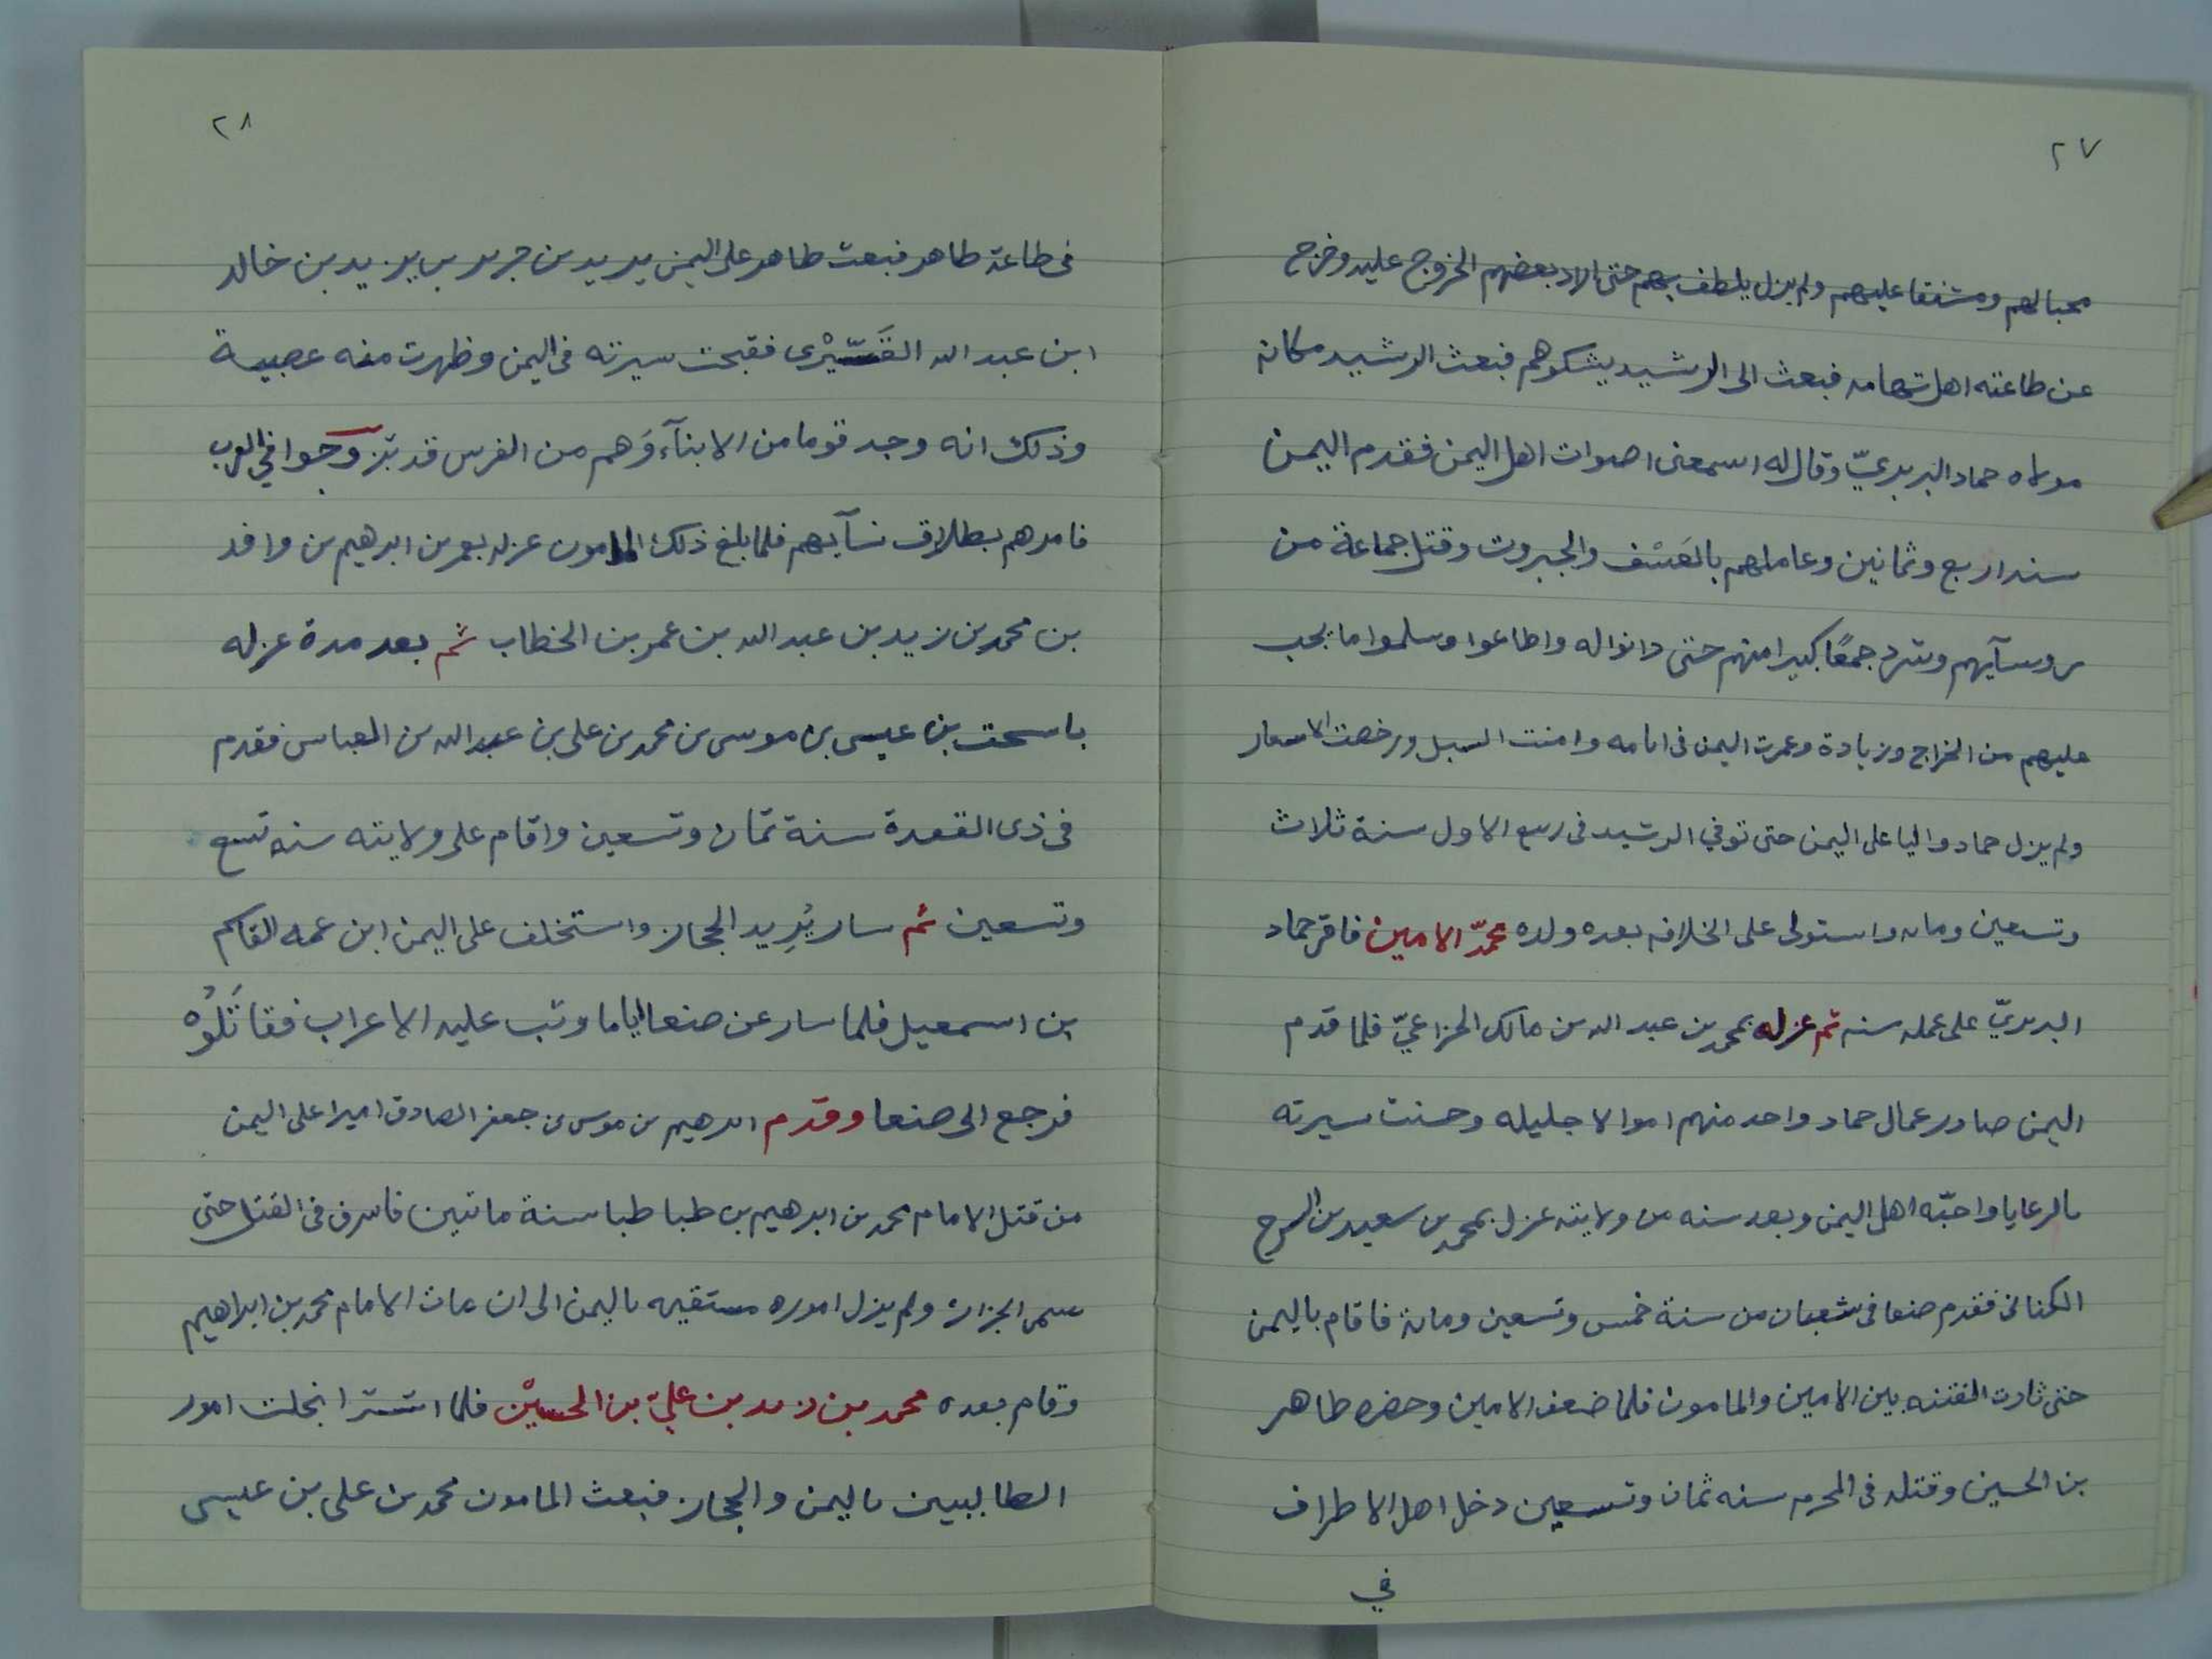 ٢٧
محبا لهم ومشفقا عليهم ولم يزل يلطف بهم حتى اراد بعضهم الخروج عليه وخرج
عن طاعته اهل تهامه فبعث الى الرشيد يشكوهم فبعث الرشيد مكانه
مولاه حماد البربريّ وقال له اسمعنى اصوات اهل اليمن فقدم اليمن
سنه اربع وثمانين وعاملهم بالعَسْف والجبروت وقتل جماعة من
روسآيهم وشرد جمعًا كبيرا منهم حتى دانوا له واطاعوا وسلموا ما يجب
عليهم من الخراج وزيادة وعمرت اليمن فى ايامه وامنت السبل ورخصت الاسعار
ولم يزل حماد واليا على اليمن حتى توفي الرشيد فى ربيع الاول سنة ثلاث
وتسعين ومايه واستولى على الخلافه بعده ولده محمّد الامين فاقر حماد
البربريّ على عمله سنه ثم عزله بمحمد بن عبد الله بن مالك الخزاعيّ فلما قدم
اليمن صادر عمال حماد واخذ منهم اموالا جليله وحسنت سيرته
بالرعايا واحبّه اهل اليمن وبعد سنه من ولايته عزل بمحمد بن سعيد بن السرح
الكنانى فقدم صنعا فى شعبان من سنة خمس وتسعين ومايه فاقام باليمن
حتى ثارت الفتنه بين الامين والمامون فلما ضعف الامين وحصره طاهر
بن الحسين وقتله فى المحرم سنه ثمان وتسعين دخل اهل الاطراف
في
٢٨
فى طاعة طاهر فبعث طاهر على اليمن يزيد بن جرير بن يزيد بن خالد
ابن عبد الله القَسّيْرى فقبحت سيرته فى اليمن وظهرت منه عصبية
وذلك انه وجد قوما من الابنآء وَهم من الفرس قد تزوجوا في العرب
فامرهم بطلاق نسآيهم فلما بلغ ذلك المامون عزله بعمر بن ابرهيم بن واقد
بن محمد بن زيد بن عبد الله بن عمر بن الخطاب ثم بعد مدة عزله
باسحق بن عيسى بن موسى بن محمد بن على بن عبد الله بن العباس فقدم
فى ذى القعدة سنة ثمان وتسعين واقام على ولايته سنه تسع
وتسعين ثم سار يُرِيد الحجاز واستخلف على اليمن ابن عمه القاسم
بن اسمعيل فلما سار عن صنعا اياما وثب عليه الاعراب فقاتَلُوُه
فرجع الى صنعا وقدم ابرهيم بن موسى بن جعفر الصادق اميرا على اليمن
من قتل الامام محمد بن ابرهيم بن طبا طبا سنة مائتين فاسرف فى القتل حتى
سمى الجزار ولم يزل اموره مستقيمه باليمن الى ان مات الامام محمد بن ابراهيم
وقام بعده محمد بن زيد بن عليّ بن الحسيْن فلما استتر انحلت امور
الطالبيين باليمن والحجاز فبعث المامون محمد بن على بن عيسى